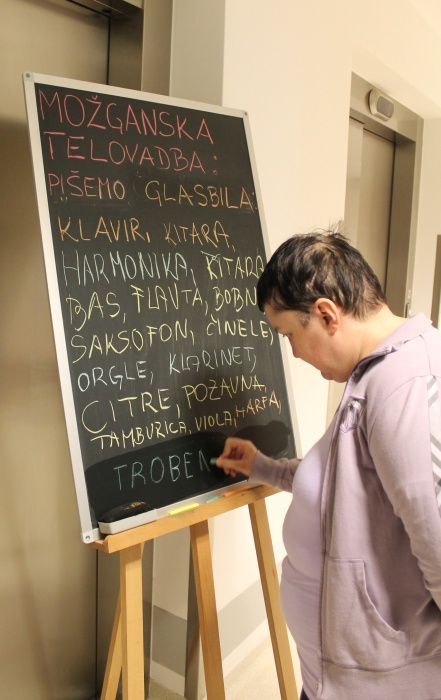 MOŽGANSKA
TELOVADBA:
PIŠEMO GLASBILA:
KLAVIR, KITARA,
HARMONIKA, KITARA
BAS, FLAVTA, BOBN
SAKSOFON, ČINELE,
ORGLE, KLARINET,
CITRE, POZAVNA,
TAMBURICA, VIOLA, HARFA,
TROBEN